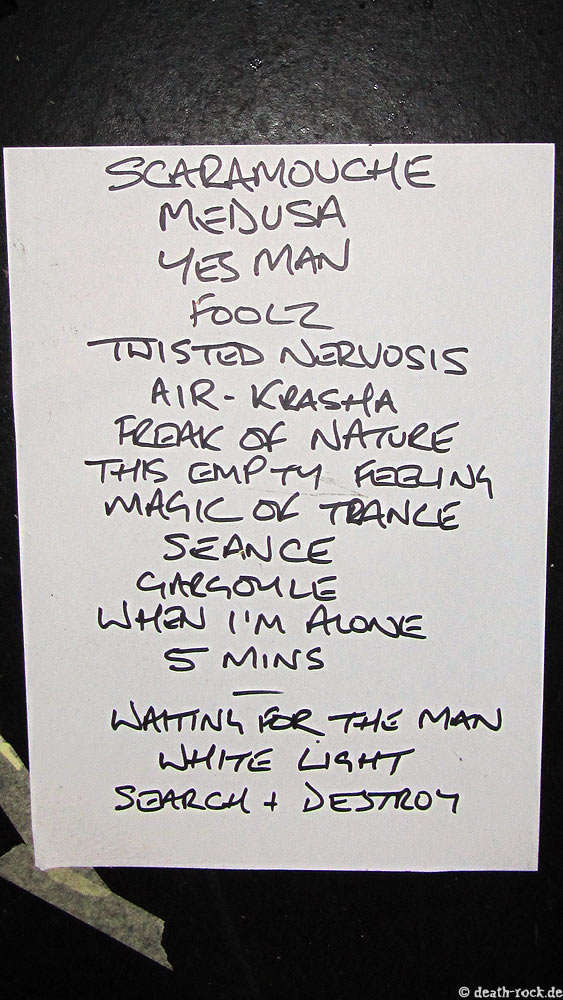 SCARAMOUCHE
MEDUSA
YES MAN
FOOLZ
TWISTED NERVOSIS
AIR-KRASHA
FREAK OF NATURE
THIS EMPTY FEELING
MAGIC OF TRANCE
SEANCE
GARGOYLE
WHEN I'M ALONE
5 MINS
WAITING FOR THE MAN
WHITE LIGHT
SEARCH + DESTROY
© death-rock.de